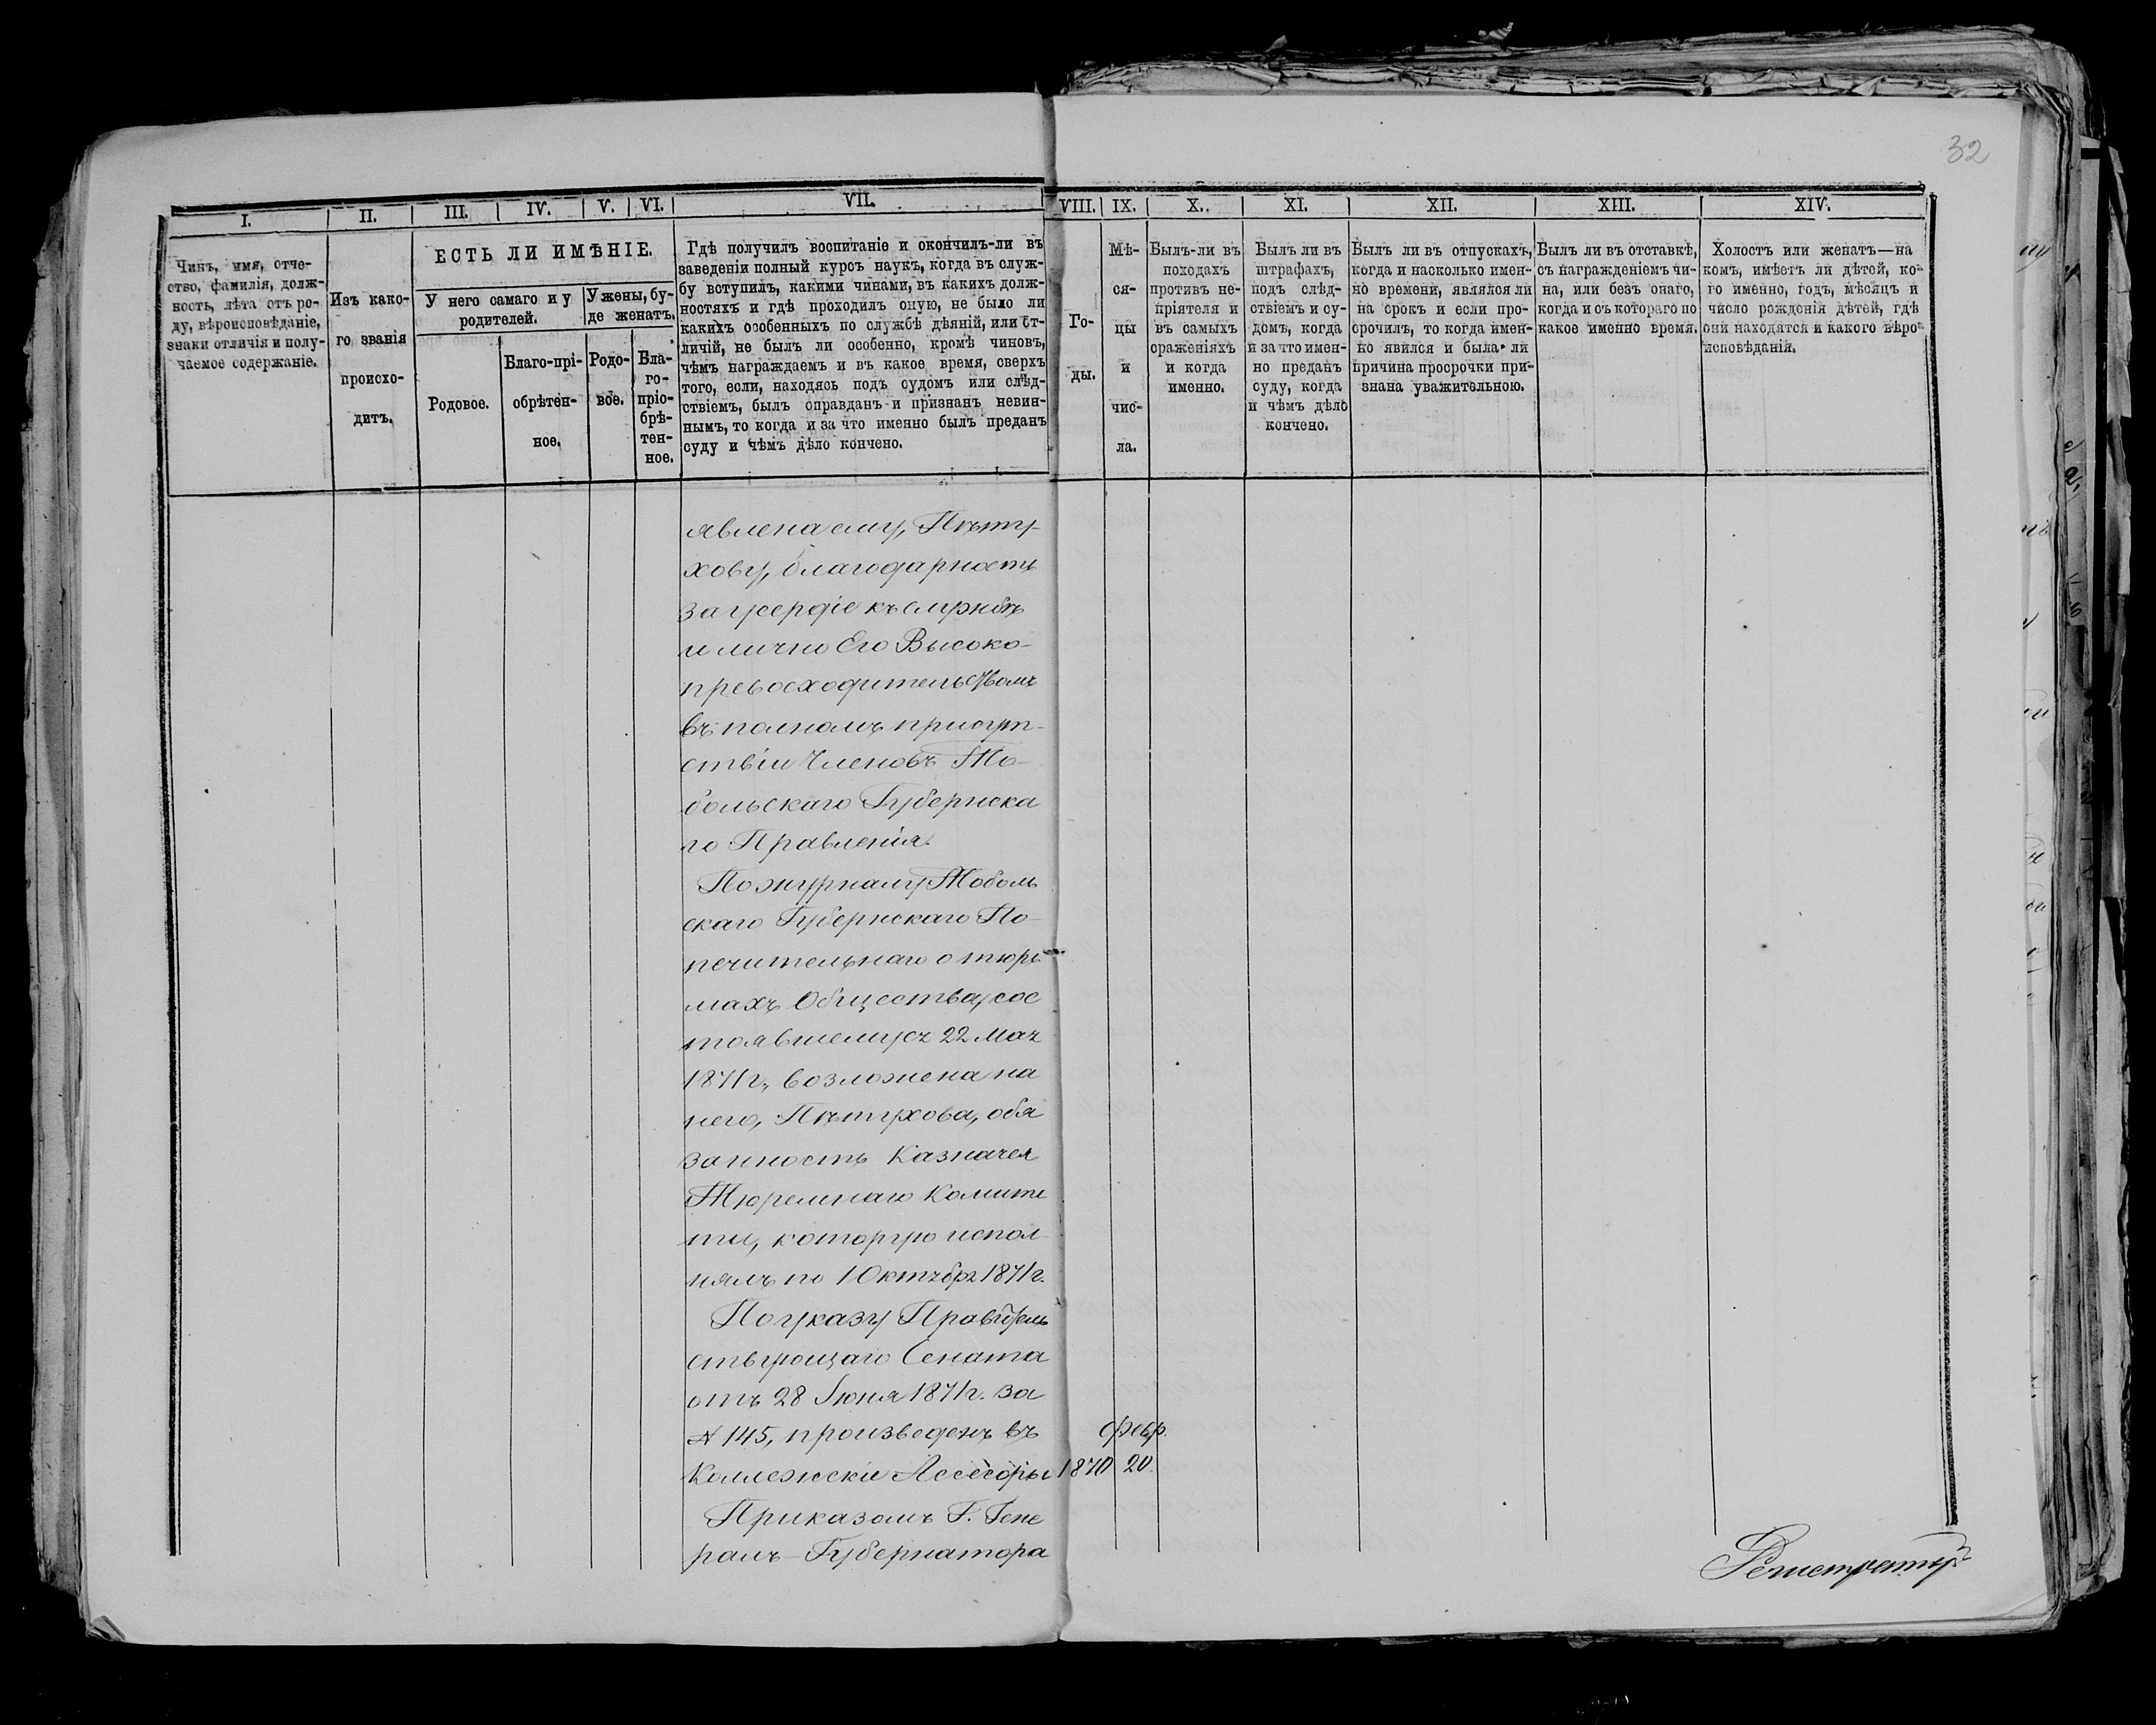 32
I. II. III. IV. V. VI. VII. VIII. IX. X. XI. XII. XIII. XIV.
Чинъ, имя, отче-
ство, фамилія, долж-
ность, лѣта отъ ро-
ду, вѣроисповѣданіе,
знаки отличія и полу-
чаемое содержаніе.
Изъ како-
го званія
происхо-
дитъ.
ЕСТЬ ЛИ ИМѢНІЕ.
У него самаго и у
родителей.
У жены, бу-
де женатъ.
Родовое.
Благо-прі-
обрѣтен-
ное.
Родо-
вое.
Бла-
го-
пріо-
брѣ-
тен-
ное.
Гдѣ получилъ воспитаніе и окончилъ-ли въ
заведеніи полный курсъ наукъ, когда въ служ-
бу вступилъ, какими чинами, въ какихъ долж-
ностяхъ и гдѣ проходилъ оную, не было ли
какихъ особенныхъ по службѣ дѣяній, или от-
личій, не былъ ли особенно, кромѣ чиновъ,
чѣмъ награждаемъ и въ какое время, сверхъ
того, если, находясь подъ судомъ или слѣд-
ствіемъ, былъ оправданъ и признанъ невин-
нымъ, то когда и за что именно былъ преданъ
суду и чѣмъ дѣло кончено.
Го-
ды.
Мѣ-
ся-
цы
и
чис-
ла.
Былъ-ли въ
походахъ
противъ не-
пріятеля и
въ самыхъ
сраженіяхъ
и когда
именно.
Былъ ли въ
штрафахъ,
подъ слѣд-
ствіемъ и су-
домъ, когда
и за что имен-
но преданъ
суду, когда
и чѣмъ дѣло
кончено.
Былъ ли въ отпускахъ,
когда и насколько имен-
но времени, являлся ли
на срокъ и если про-
срочилъ, то когда имен-
но явился и была ли
причина просрочки при-
знана уважительною.
Былъ ли въ отставкѣ,
съ награжденіемъ чи-
на, или безъ онаго,
когда и съ котораго по
какое именно время.
Холостъ или женатъ—на
комъ, имѣетъ ли дѣтей, ко-
го именно, годъ, мѣсяцъ и
число рожденія дѣтей, гдѣ
они находятся и какого вѣро-
исповѣданія.
явлена ему, Пѣту-
хову, благодарность
за усердіе къ службѣ
и лично Его Высоко-
превосходительствомъ
въ полномъ присут-
ствіи Членовъ То-
больскаго Губернска
го Правленія.
По журналу Тоболь
скаго Губернскаго По-
печительнаго о тюрь
махъ Общества, сос
тоявшемуся 22 Мая
1871 г., возложена на
него, Пѣтухова, обя
занность Казначея
Тюремнаго Комите
та, которую испол
нялъ по 1 Октября 1871 г.
По указу Правитель
ствующаго Сената
отъ 28 Іюня 1871 г. за
№ 145, произведенъ въ
Коллежскіе Ассесоры 1870 февр. 20.
Приказомъ Г. Гене
ралъ-Губернатора
Регистраторъ